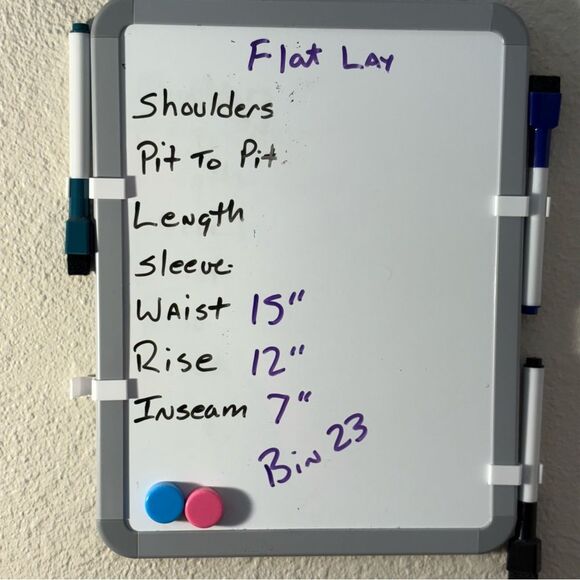 Flat Lay
Shoulders
Pit To Pit
Length
Sleeve
Waist 15"
Rise 12"
Inseam 7"
Bin 23